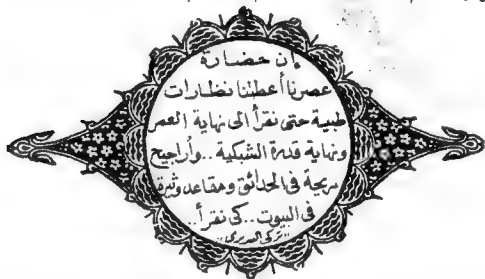 إن حضارة
عصرنا أعطتنا نظارات
طبية حتى نقرأ الى نهاية العمر
ونهاية قدرة الشبكية .. وأراجيح
مريحة في الحدائق ومقاعد وثيرة
في البيوت .. كى نقرأ ..
"تركي السديري"